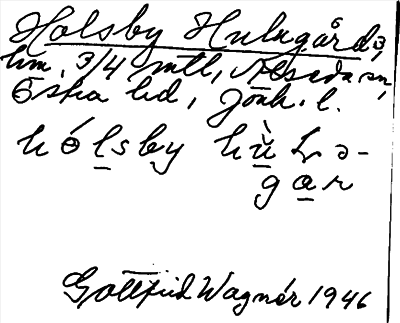 Holsby Hulugård,
hm. 3/4 mtl, Alseda sn,
Östra hd, Jönk. l.
hólsby hùlɔ-
gar
Gottfrid Wagnér 1946